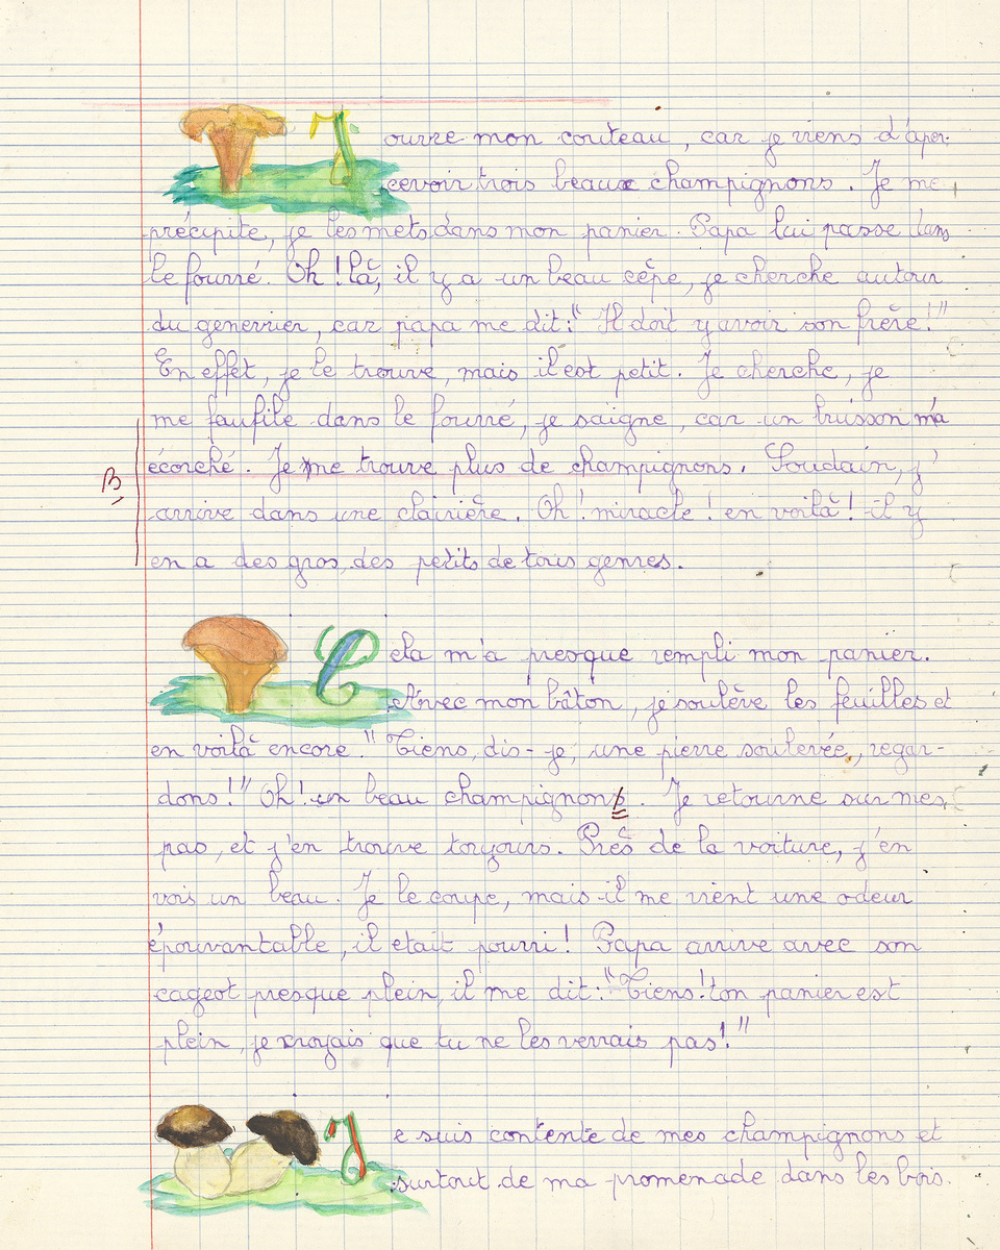 J'ouvre mon couteau, car je viens d'aper-
cevoir trois beaux champignons. Je me
précipite, je les mets dans mon panier. Papa lui passe dans
le fourré. Oh ! là, il y a un beau cêpe, je cherche autour
du genevrier, car papa me dit : " Il doit y avoir son frère ! "
En effet, je le trouve, mais il est petit. Je cherche, je
me faufile dans le fourré, je saigne, car un buisson m'a
écorché. Je ne trouve plus de champignons. Soudain, j'
B
arrive dans une clairière. Oh ! miracle ! en voilà ! il y
en a des gros, des petits de tous genres.
Cela m'a presque rempli mon panier.
Avec mon bâton, je soulève les feuilles et
en voilà encore. " Tiens, dis-je, une pierre soulevée, regar-
dons ! " Oh ! un beau champignons. Je retourne sur mes
pas, et j'en trouve toujours. Près de la voiture, j'en
vois un beau. Je le coupe, mais il me vient une odeur
épouvantable, il etait pourri ! Papa arrive avec son
cageot presque plein, il me dit : " Tiens ! ton panier est
plein, je croyais que tu ne les verrais pas ! "
Je suis contente de mes champignons et
surtout de ma promenade dans les bois.